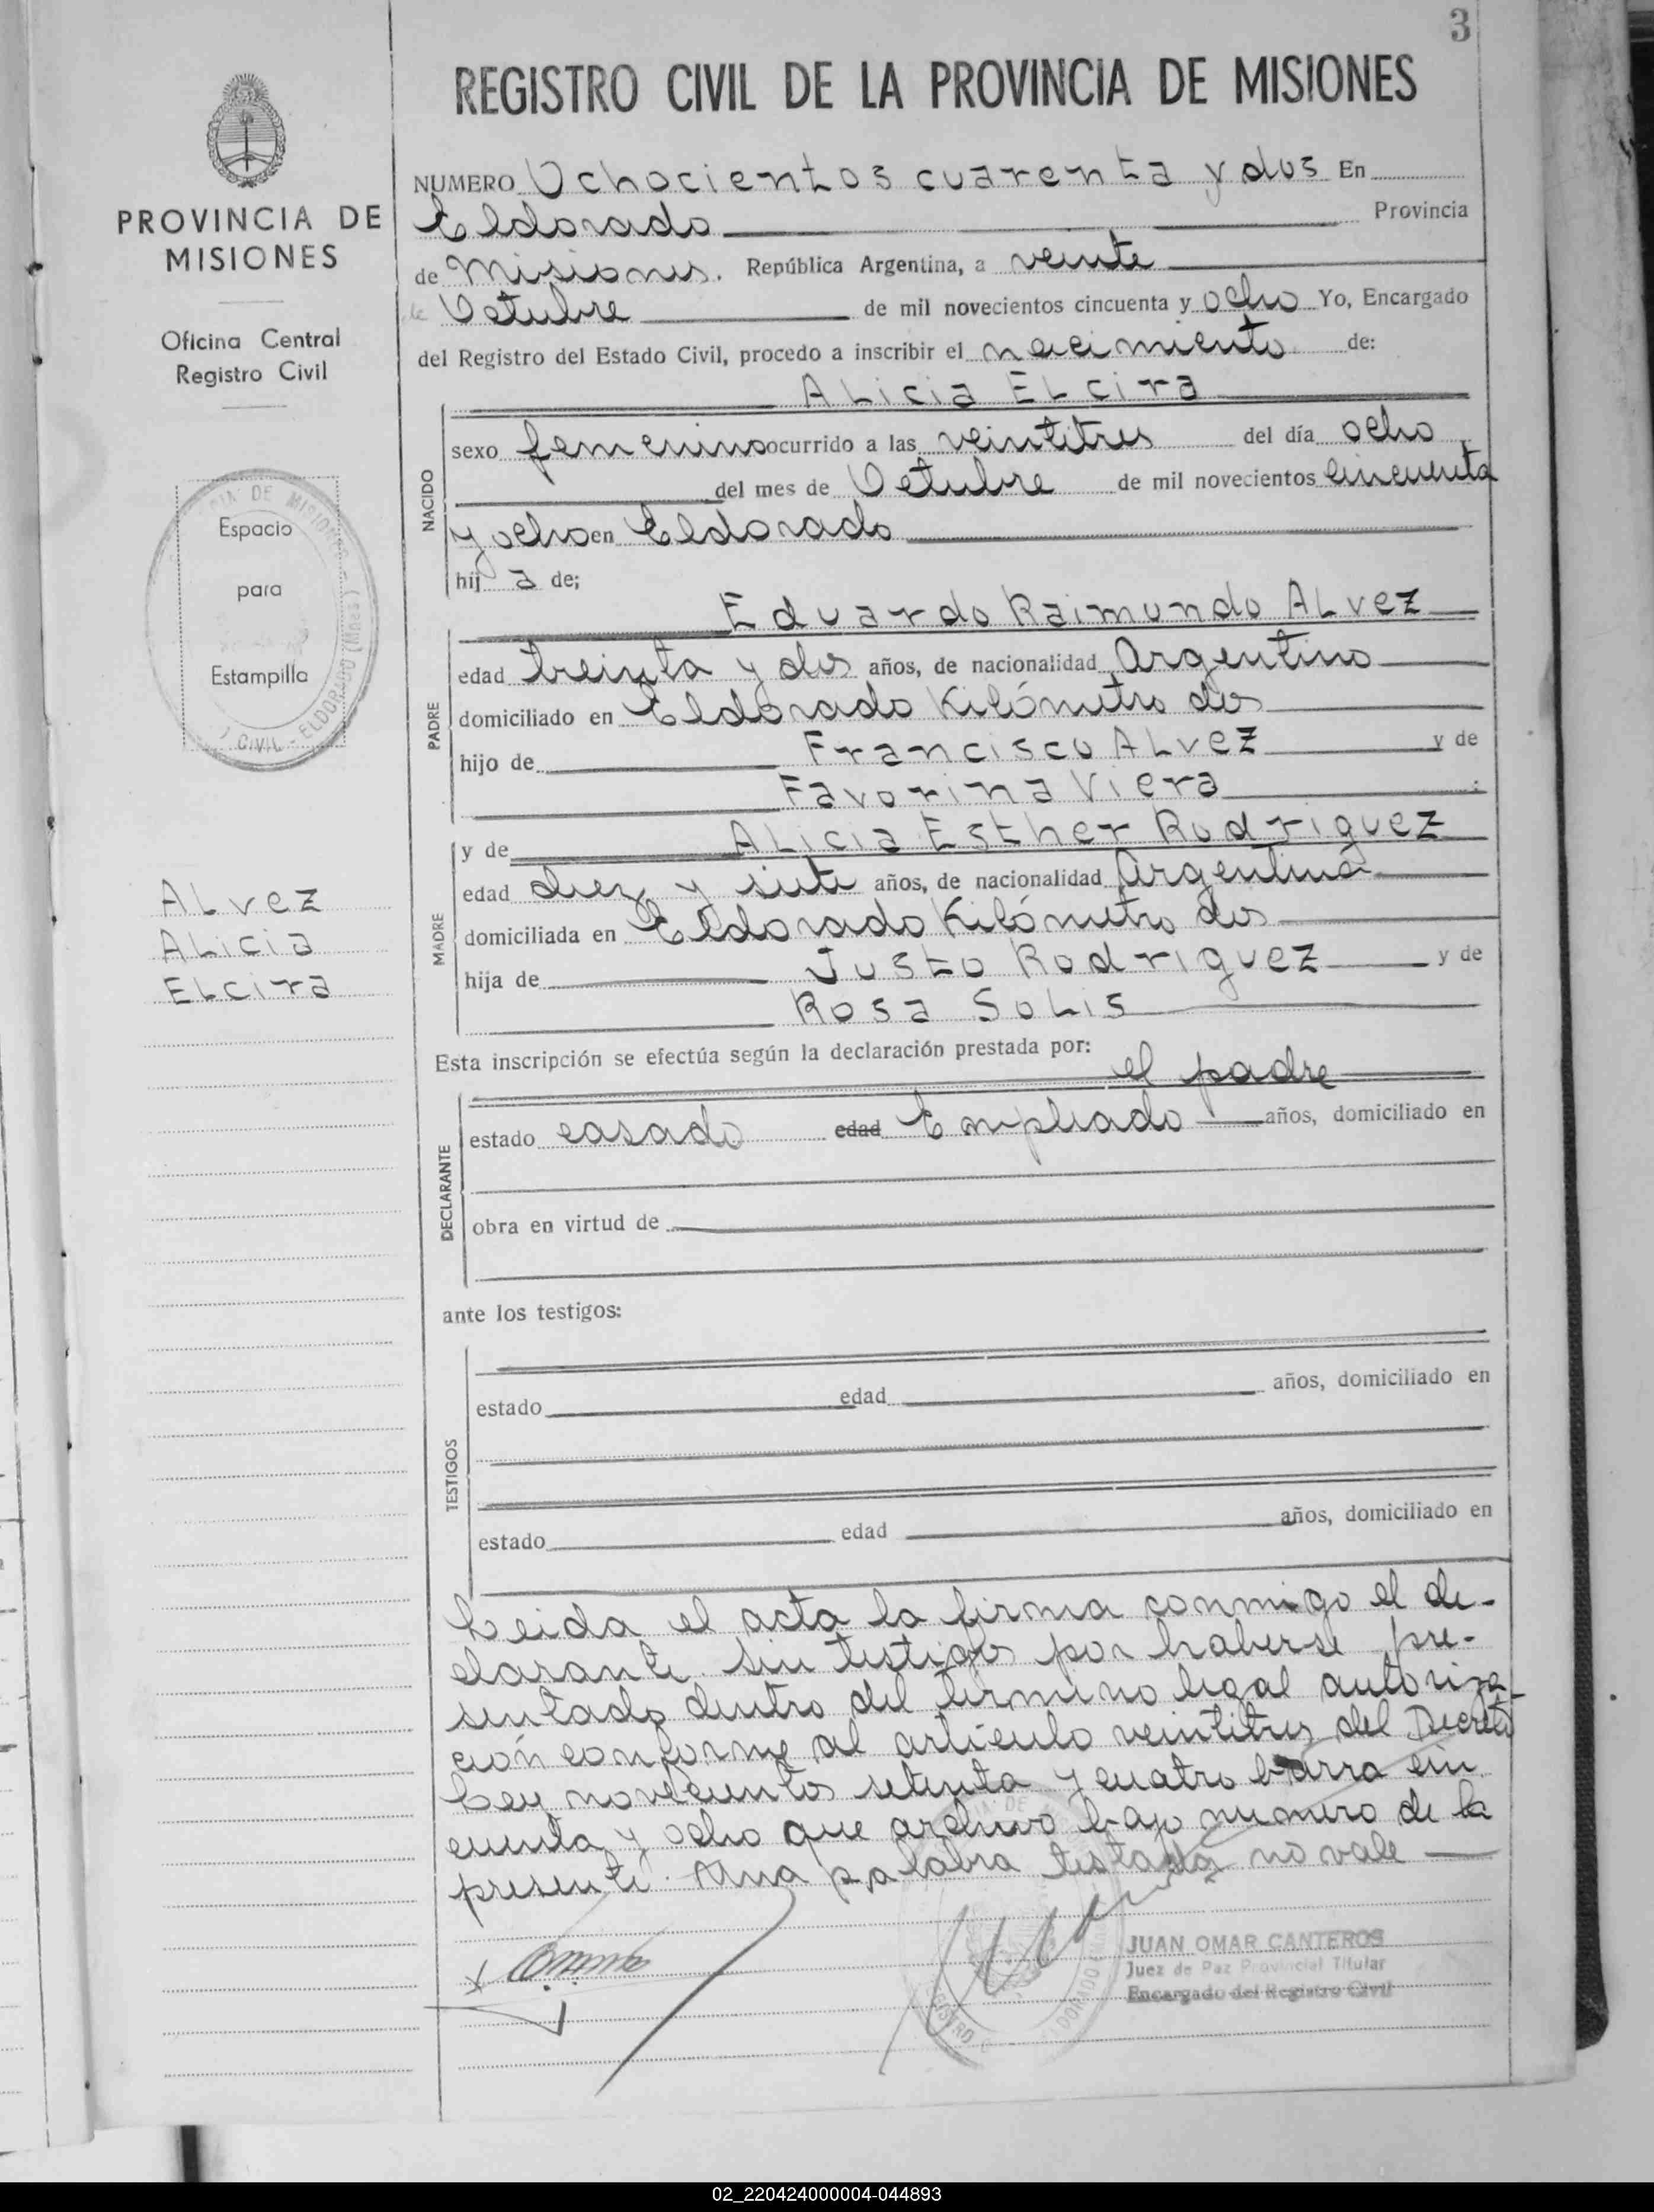 3
REGISTRO CIVIL DE LA PROVINCIA DE MISIONES
PROVINCIA DE
MISIONES
Oficina Central
Registro Civil
Espacio
para
Estampilla
CIVIL - ELDORADO (Mnes.)
ALvez
ALicia
ELcira
NUMERO Ochocientos cuarenta y dos En
Eldorado Provincia
de Misiones. República Argentina, a veinte
de Octubre de mil novecientos cincuenta y ocho Yo, Encargado
del Registro del Estado Civil, procedo a inscribir el nacimiento de:
ALicia ELcira
NACIDO
sexo femenino ocurrido a las veintitres del día ocho
del mes de Octubre de mil novecientos cincuenta
y ocho en Eldorado
hij a de;
Eduardo Raimundo ALvez
PADRE
edad treinta y dos años, de nacionalidad Argentino
domiciliado en Eldorado Kilómetro dos
hijo de Francisco ALvez y de
Favorina Viera
y de ALicia Esther Rodriguez
MADRE
edad diez y siete años, de nacionalidad Argentina
domiciliada en Eldorado Kilómetro dos
hija de Justo Rodriguez y de
Rosa SoLis
Esta inscripción se efectúa según la declaración prestada por:
el padre
DECLARANTE
estado casado edad Empleado años, domiciliado en
obra en virtud de
ante los testigos:
TESTIGOS
estado edad años, domiciliado en
estado edad años, domiciliado en
Leida el acta la firma conmigo el de-
clarante sin testigos por haberse pre-
sentado dentro del termino legal autoriza-
ción conforme al artículo veintitres del Decreto
Ley novecientos setenta y cuatro barra cin
cuenta y ocho que archivo bajo numero de la
presente. Una palabra testada no vale
JUAN OMAR CANTEROS
Juez de Paz Provincial Titular
Encargado del Registro Civil
02_220424000004-044893